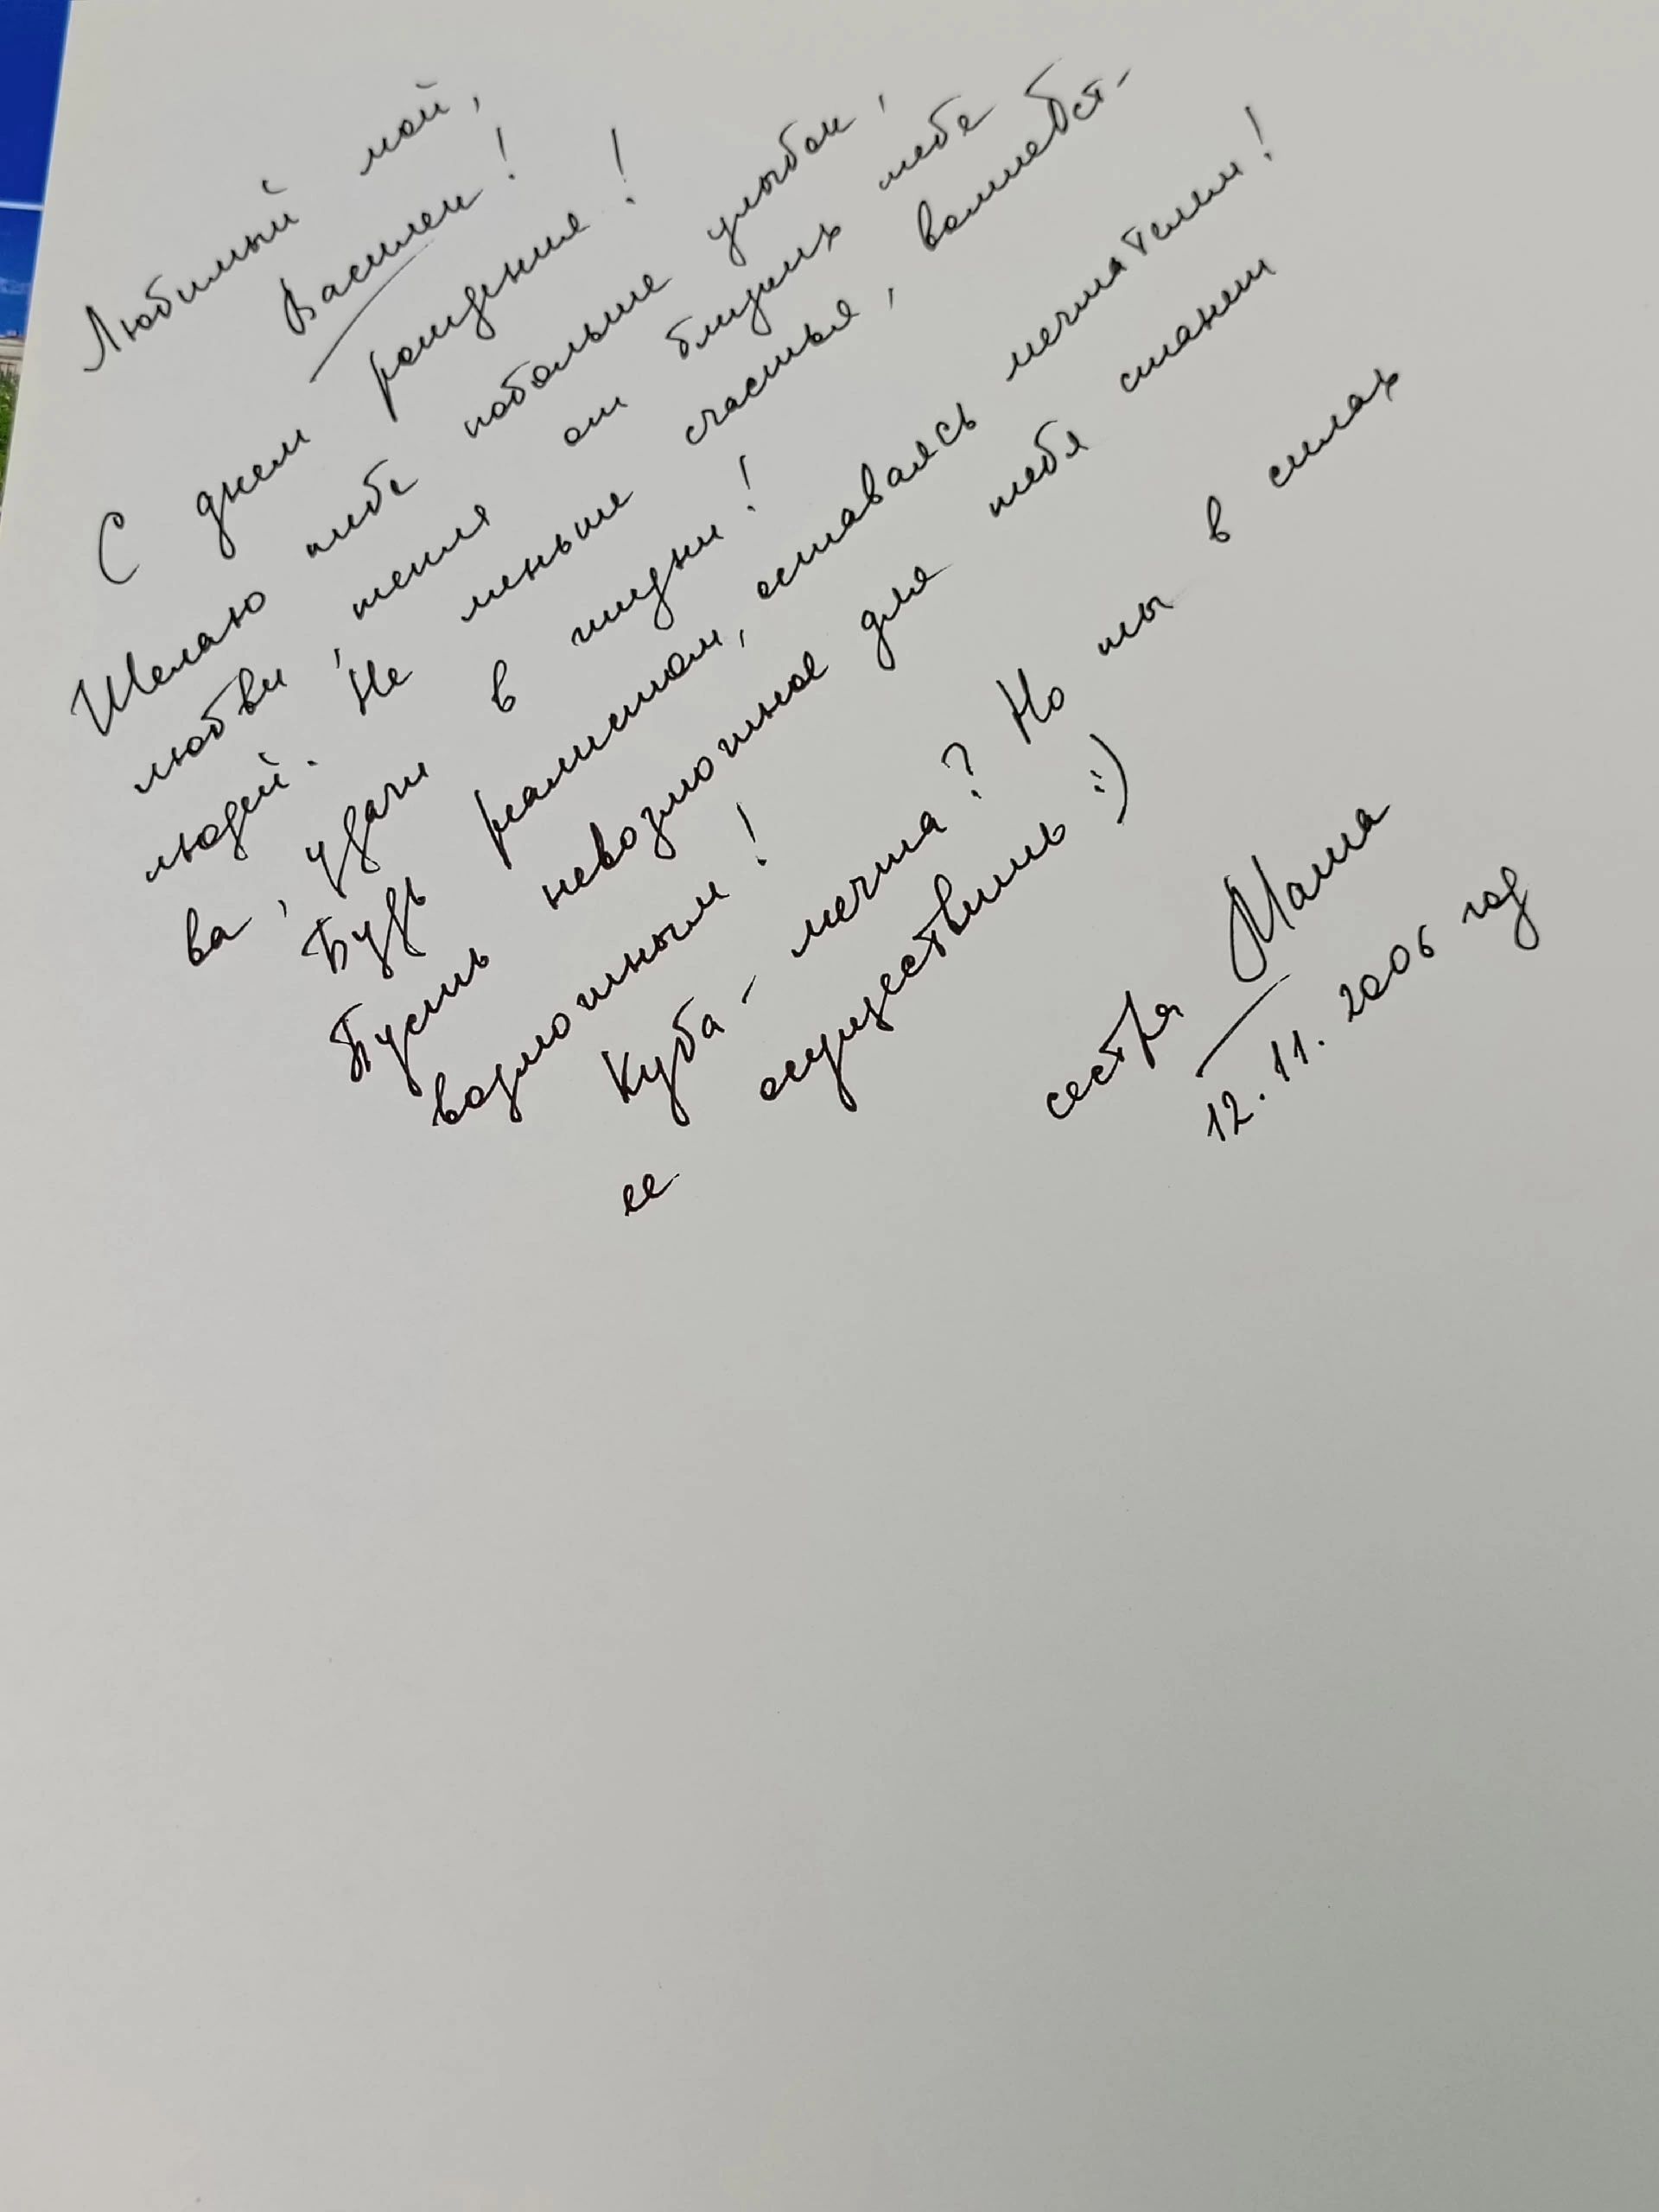 Любимый мой,
Василек!
С днем рождения!
Желаю тебе побольше улыбок,
любви, тепла от близких тебе
людей. Не меньше счастья, волшебст-
ва, удачи в жизни!
Будь реалистом, оставаясь мечтателем!
Пусть невозможное для тебя станет
возможным!
Куба - мечта? Но ты в силах
ее осуществить :)
сестра Маша
12.11.2006 год